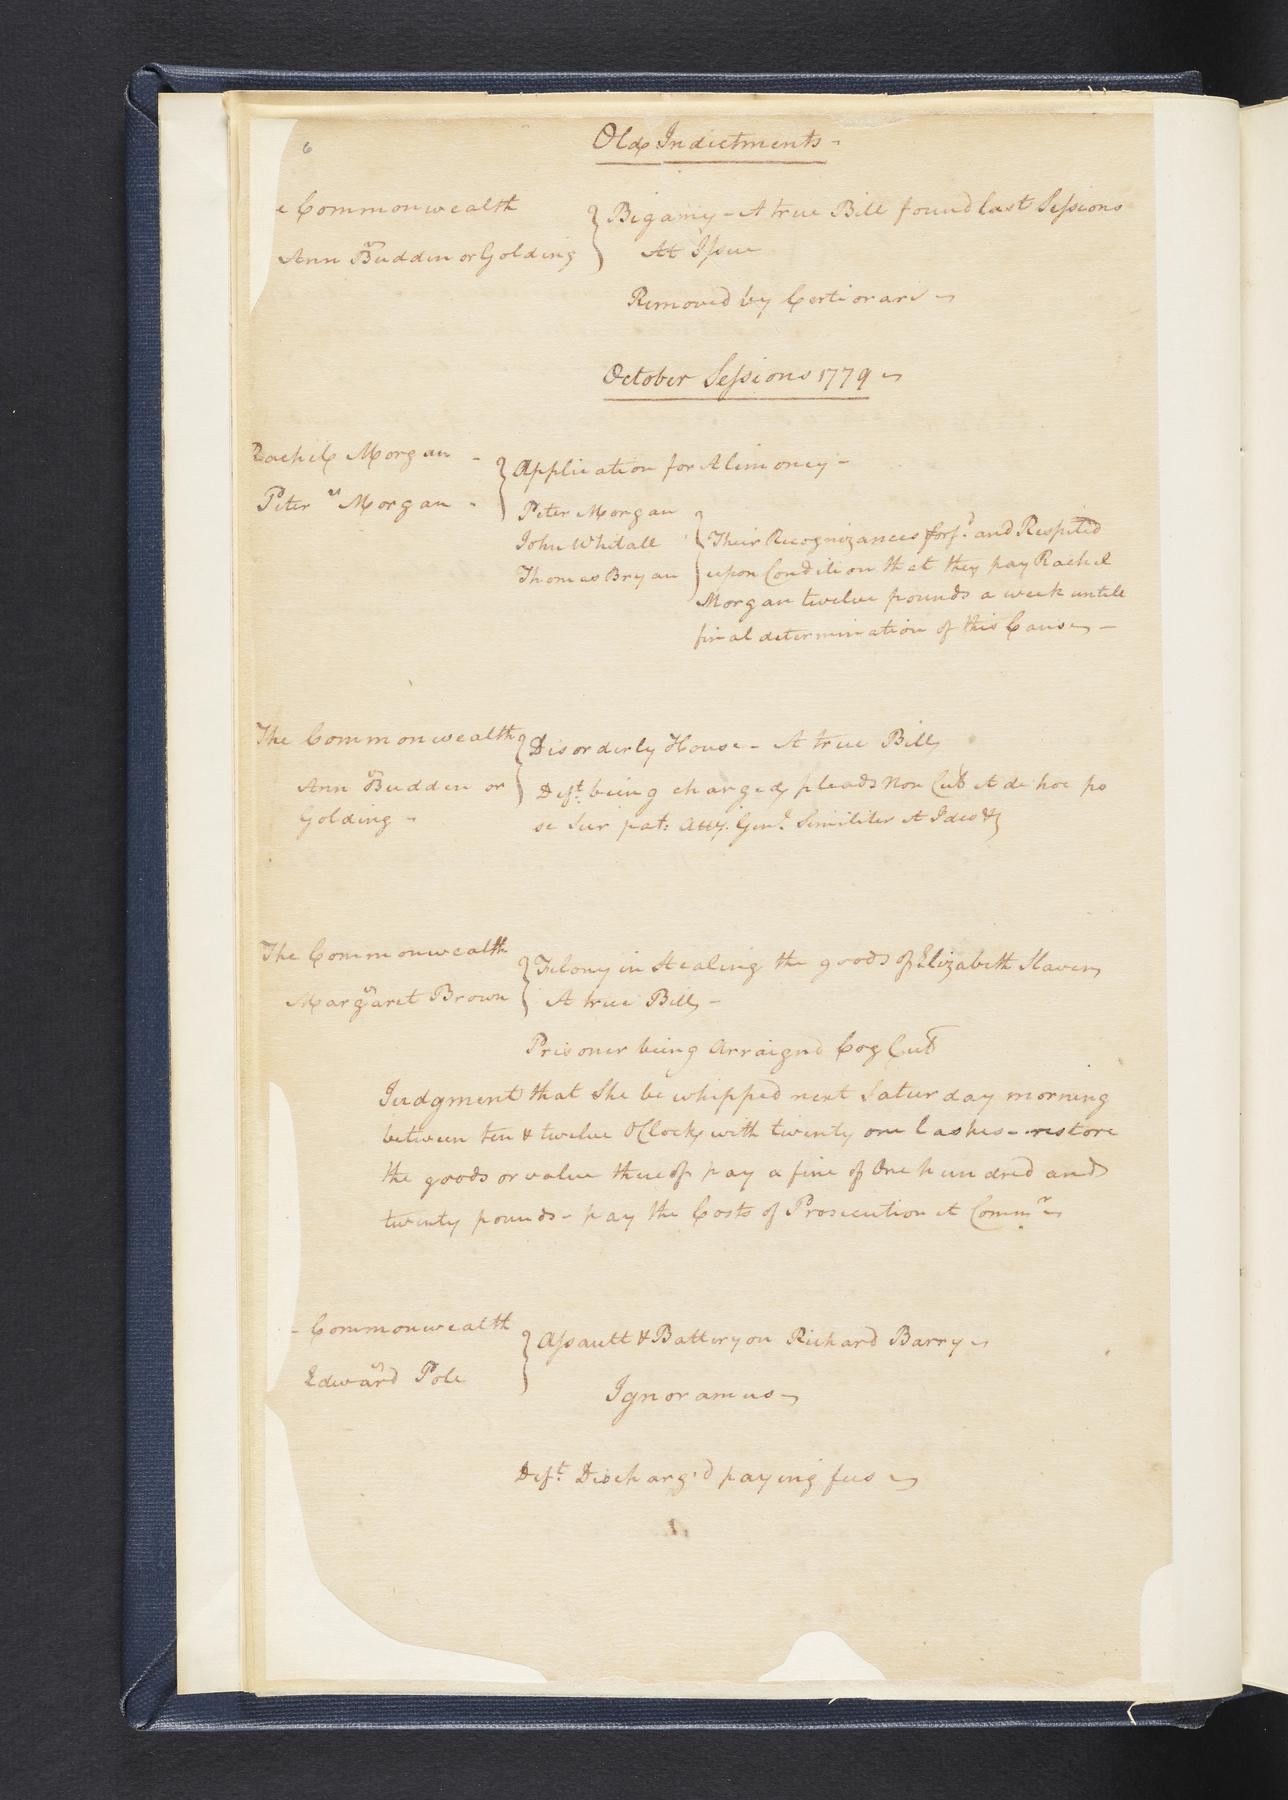 6
Old Indictments -
e Commonwealth
vs
Ann Budden or Golding
Bigamy - A true Bill found last Sessions
At Issue
Removed by Certiorari
October Sessions 1779
Rachel Morgan -
vs
Peter Morgan -
Application for Alimoney -
Peter Morgan
John Whitall
Thomas Bryan
Their Recognizances forfd. and Respited
upon Condition that they pay Rachel
Morgan twelve pounds a week untill
final determination of this Cause -
The Commonwealth
vs
Ann Budden or
Golding -
Disorderly House - A true Bill
Deft. being charged pleads Non Cul et de hoc po
se Sur pat: Atty. Genl. Similiter et Ideo &
The Commonwealth
vs
Margaret Brown
Felony in Stealing the goods of Elizabeth Haven
A true Bill -
Prisoner being Arraignd Cog Cul
Judgment that She be whipped next Saturday morning
between ten & twelve OClock with twenty one lashes - restore
the goods or value thereof pay a fine of One hundred and
twenty pounds - pay the Costs of Prosecution et Commr
Commonwealth
vs
Edward Pole
Assault & Battery on Richard Barry
Ignoramus
Deft. Discharg'd paying fees